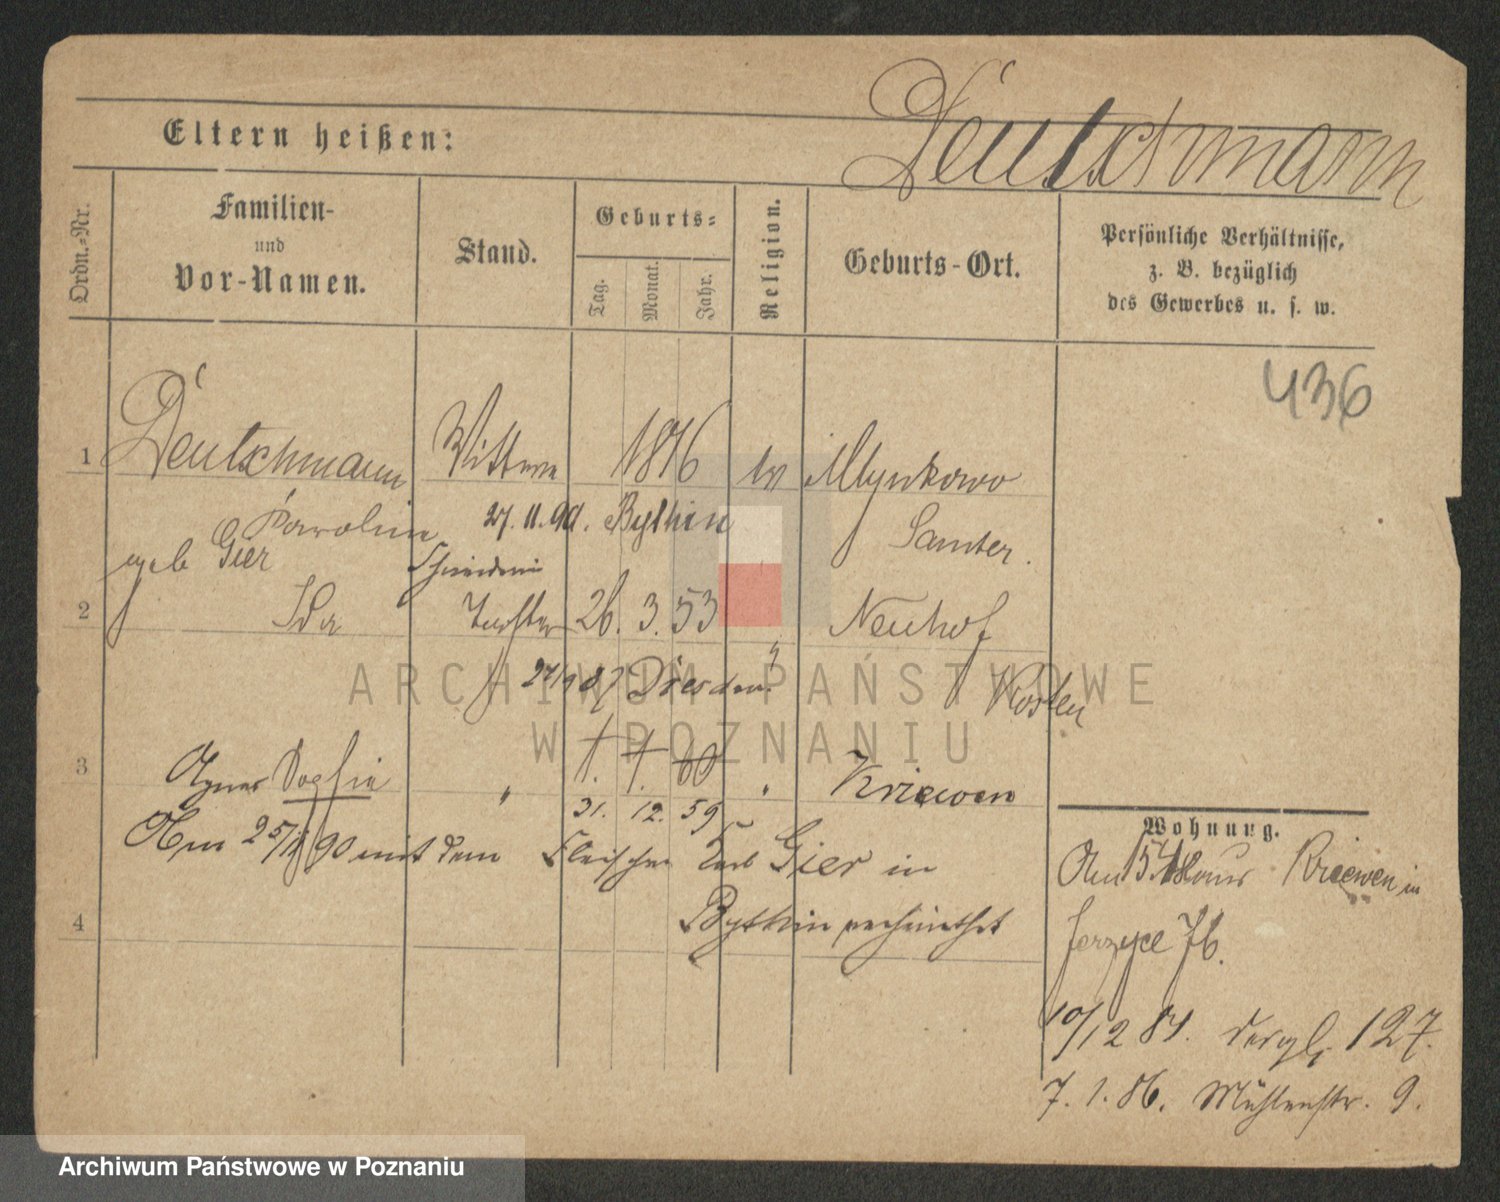 Deutschmann
Eltern heißen:
Ordn.=Nr.
Familien-
und
Vor-Namen.
Stand.
Geburts=
Tag.
Monat.
Jahr.
Religion.
Geburts-Ort.
Persönliche Verhältnisse,
z. B. bezüglich
des Gewerbes u. s. w.
436
1 Deutschmann Wittwe 1816 ev Mlynkowo
Karolin 27.11.90. Bythin Samter.
geb Gier
Schneiderin
2 Ida Tochter 26. 3. 53 Neuhof
Dresden. Kosten
3 Agnes Sophie " 1. 1. 60 " Kriewen
31. 12. 59
Am 25/11 90 mit dem Fleischer Gier in
4 Bythin verheirathet
Wohnung.
Am aus Kriewen in
Jerzyce 76.
10/12 84. dergl. 127.
7. 1. 86. Mühlenstr. 9.
ARCHIWUM PAŃSTWOWE
W POZNANIU
Archiwum Państwowe w Poznaniu